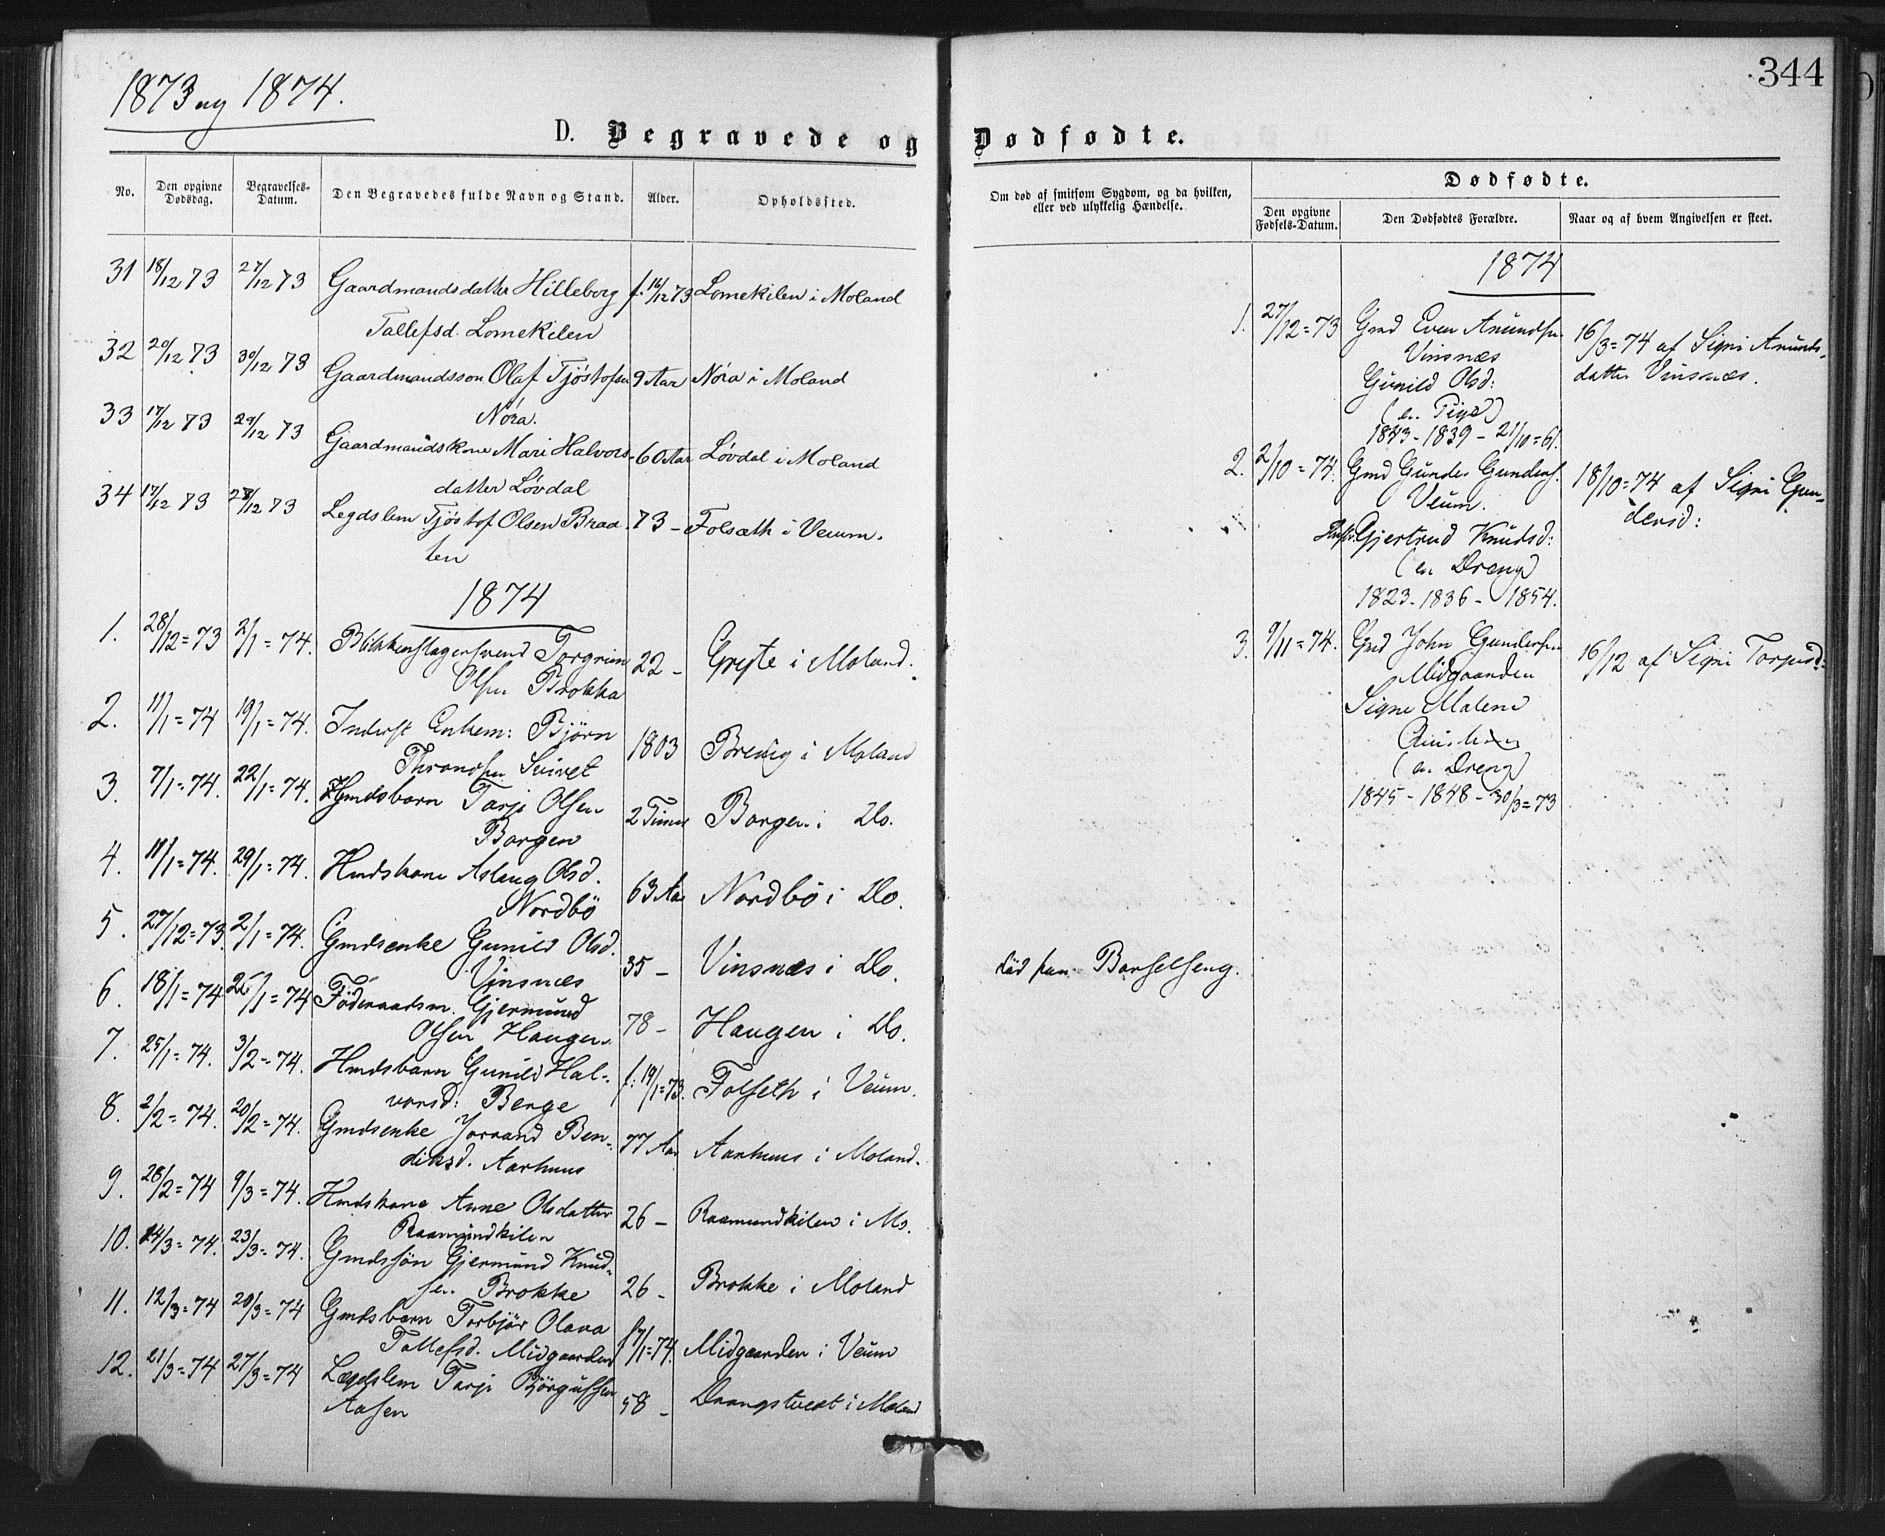 1873 og 1874.
344
D. Begravede og Dødfødte.
No.
Den opgivne Dødsdag.
Begravelses-Datum.
Den Begravedes fulde Navn og Stand.
Alder.
Opholdssted.
Om død af smitsom Sygdom, og da hvilken, eller ved ulykkelig Hændelse.
Dødfødte.
Den opgivne Fødsels-Datum.
Den Dødfødtes Forældre.
Naar og af hvem Angivelsen er skeet.
31 18/12 73 27/12 73 Gaardmandsdatter Hilleborg f. 16/12 73 Lomekilen i Moland
Tallefsd. Lomekilen
32 20/12 73 30/12 73 Gaardmandsson Olaf Tjöstofsen 9 Aar Nóra i Moland
Nóra.
33 17/12 73 29/12 73 Gaardmandskone Mari Halvors- 60 Aar Løvdal i Moland
datter Løvdal
34 17/12 73 28/12 73 Legdslem Tjöstof Olsen Braa- 73 - Folsæth i Veum.
ten
1874
1. 28/12=73 2/1=74. Blikkenslagersvend Torgrim 22 - Greste i Moland.
Olsen Brokka
2. 11/1=74 19/1=74. Inderst Enkem: Bjørn 1803 Brevig i Moland
Throndsen
3. 7/1=74. 22/1=74. Hmdsbarn Tarje Olsen 2 Timer Borgen i Do.
Borgen
4. 11/1=74. 29/1=74. Hmdskone Aslaug Olsd. 63 Aar Nordbö i Do.
Nordbö
5. 27/12=73. 2/1=74. Gmdsenke Gunild Olsd. 35 - Vinsnæs i Do. død paa Barselseng.
Vinsnæs
6. 18/1=74 25/1=74 Föderaadsm. Gjermund 78 - Haugen i Do.
Olsen Haugen
7. 25/1=74. 3/2=74. Hmdsbarn Gunild Hal- f: 19/1=73. Folseth i Veum.
vorsd: Berge
8. 2/2=74. 20/2=74. Gmdsenke Jorand Ben- 77 Aar Aarhuus i Moland.
diksd. Aarhuus
9. 28/2=74 9/3=74. Hmdskone Anne Olsdatter 26 - Raamundkilen i Mo.
Raamundkilen
10. 14/3=74. 23/3=74. Gmdssön Gjermund Knud- 26 - Brokke i Moland
sen Brokke
11. 12/3=74 20/3=74 Gmdsbarn Torbjör Olava f 7/1=74. Midgaarden i Veum
Tallefsd. Midgaarden
12. 21/3=74 27/3=74 Lægdslem Tarje Björgufsen 58 - Drangstveit i Moland
Aasen
1874
1. 27/12=73 Gmd Even Anundsen 16/3=74 af Signi Anunds-
Vinsnæs datter Vinsnæs.
Gunild Olsd:
(en Pige)
1843-1839-21/10=61.
2. 2/10=74. Gmd Gunder Gundersf. 18/10=74 af Signi Gun-
Veum. dersd:
Hustr: Gjertrud Knudsd:
(en Dreng)
1823-1836-1854.
3. 9/11=74. Gmd John Gundersen 16/12 af Signi Torjusd:
Midgaarden
Signe Malene
(en Dreng)
1845-1848-30/3=73